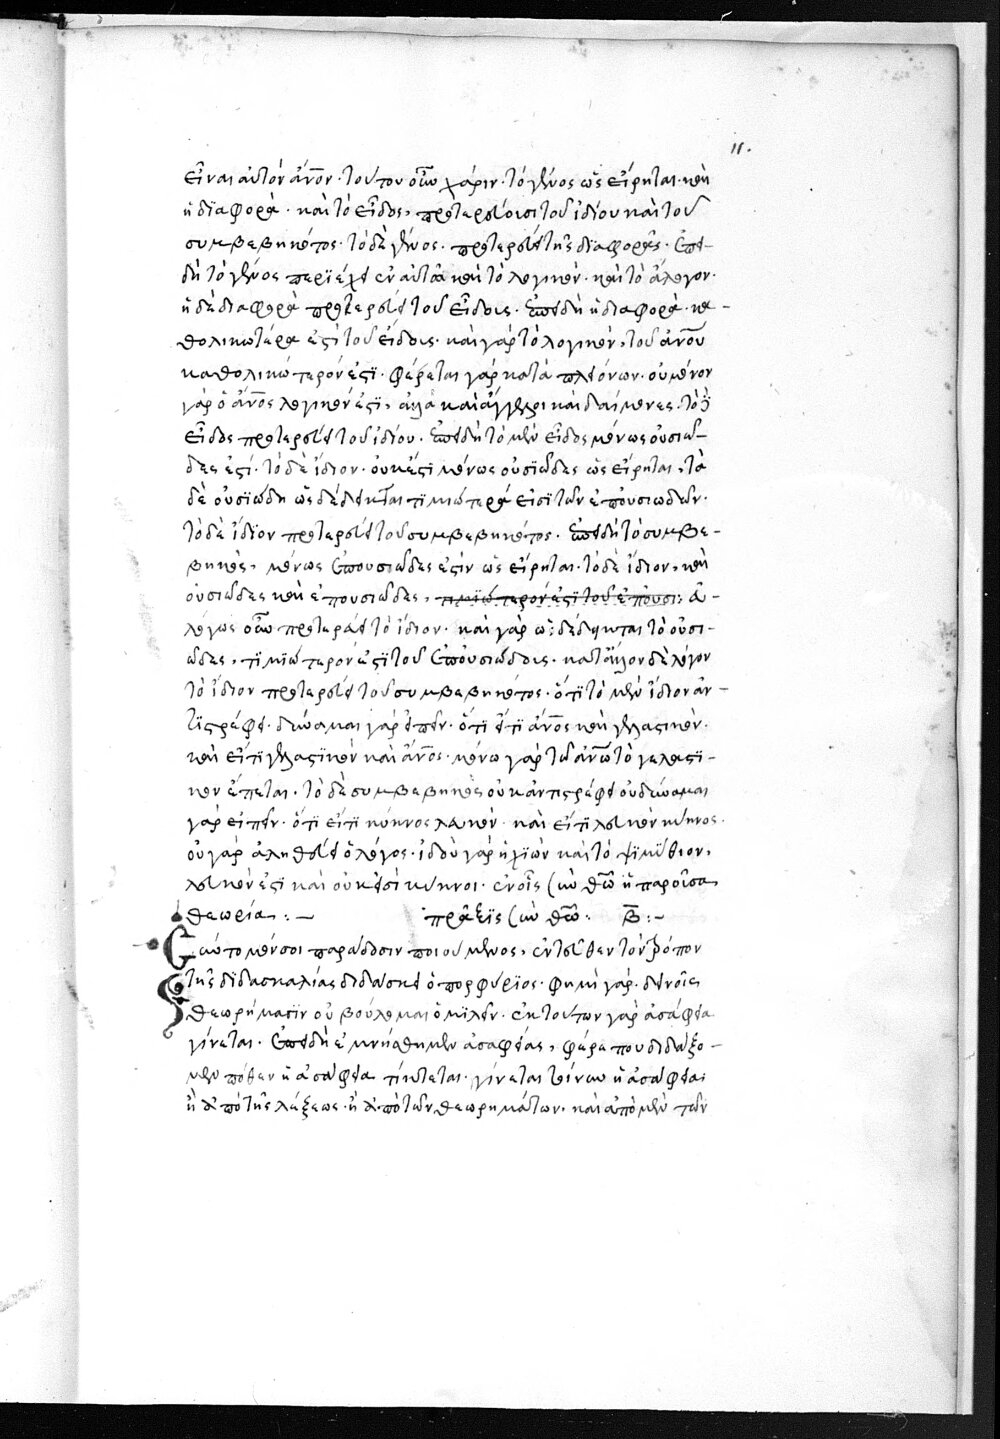 11.
εἶναι αὐτὸν ἄνον· τούτου οὕτω χάριν· τὸ γένος ὡς εἴρηται· καὶ
ἡ διαφορὰ· καὶ τὸ εἶδος, προτερεύουσι τοῦ ἰδίου καὶ τοῦ
συμβεβηκότος· τὸ δὲ γένος· προτερεύει τῆς διαφορᾶς· ἐπει
δὴ τὸ γένος περϊέχει ἐν αὐτῶ καὶ τὸ λογικὸν· καὶ τὸ ἄλογον·
ἡ δὲ διαφορὰ προτερεύει τοῦ εἴδους· ἐπειδὴ ἡ διαφορὰ· κα-
θολικωτέρα ἐστὶ τοῦ εἴδους· καὶ γὰρ τὸ λογικὸν, τοῦ ἀνου
καθολικώτερόν ἐστϊ· φέρεται γὰρ κατὰ πλειόνων· οὐ μόνον
γὰρ ὁ ἄνος λογικόν ἐστϊ, ἀλλὰ καὶ ἄγγελοι καὶ δαίμονες· τὸ δὲ
εἶδος προτερεύει τοῦ ἰδίου· ἐπειδὴ τὸ μὲν εἶδος μόνως οὐσιῶ-
δες ἐστί· τὸ δὲ ἴδιον· οὐκ ἔστϊ μόνως οὐσϊῶδες ὡς εἴρηται, τὰ
δὲ οὐσϊώδη ὡς δέδεικται τϊμιώτερά εἰσϊ τῶν ἐπουσιωδῶν·
τὸ δὲ ἴδϊον προτερεύει τοῦ συμβεβηκότος· ἐπειδὴ τὸ συμβε-
βηκὸς, μόνως ἐπουσιῶδες ἐστὶν ὡς εἴρηται· τὸ δὲ ἴδιον, καὶ
οὐσιῶδες καὶ ἐπουσιῶδες, τιμϊώτερόν ἐστϊ τοῦ ἐπουσι: εὐ-
λόγως οὕτω προτερεύει τὸ ἴδιον· καὶ γὰρ ὡς δέδεικται τὸ οὐσι-
ῶδες, τϊμιώτερόν ἐστϊ τοῦ ἐπουσιώδους· κατ' ἄλλον δὲ λόγον
τὸ ἴδιον προτερεύει τοῦ συμβεβηκότος· ὅτϊ τὸ μὲν ἴδιον ἀν-
τϊστρέφει· δύναμαι γὰρ εἰπεῖν· ὅτϊ εἴ τϊ ἄνος καὶ γελαστικὸν·
καὶ εἴ τϊ γελαστϊκὸν καὶ ἄνος· μόνω γὰρ τῶ ἀνω τὸ γελαστϊ-
κον ἕπεται· τὸ δὲ συμβεβηκὸς οὐκ ἀντιστρέφει οὐ δύναμαι
γὰρ εἰπεῖν· ὅτϊ εἴ τι κύκνος λευκὸν· καὶ εἴ τϊ λευκὸν κύκνος·
οὐ γὰρ ἀληθεύει ὁ λόγος· ἰδοὺ γὰρ ἡ χϊὼν καὶ τὸ ψϊμϋθιον,
λευκόν ἐστϊ καὶ οὐκ εἰσὶ κύκνοι· ἐν οἷς σὺν θῶ ἡ παροῦσα
θεωρία:— πρᾶξϊς σὺν θῶ: Β:—
Σαυτομένσοι παράδοσιν ποιούμενος, ἐντεῦθεν τὸν τρόπον
τῆς διδασκαλίας διδάσκει ὁ πορφύριος· φησὶ γάρ· δεινοῖς
θεωρήμασϊν οὐ βούλομαι ὁμϊλεῖν· ἐκ τούτων γὰρ ἀσάφεια
γίνεται· ἐπειδὴ ἐμνήσθημεν ἀσαφείας, φέρε που διδάξο-
μεν πόθεν ἡ ἀσάφεια τίκτεται· γίνεται τοίνυν ἡ ἀσάφεια
ἢ ἀπὸ τῆς λέξεως· ἢ ἀπὸ τῶν θεωρημάτων· καὶ ἀπὸ μὲν τῶν